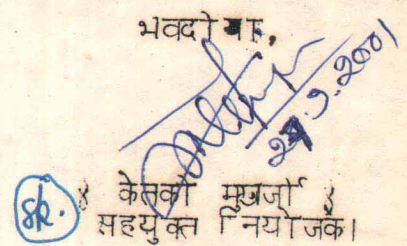 भवदीया,
27.9.2001
sk.
केतकी मुखर्जी
सहयुक्त नियोजक।